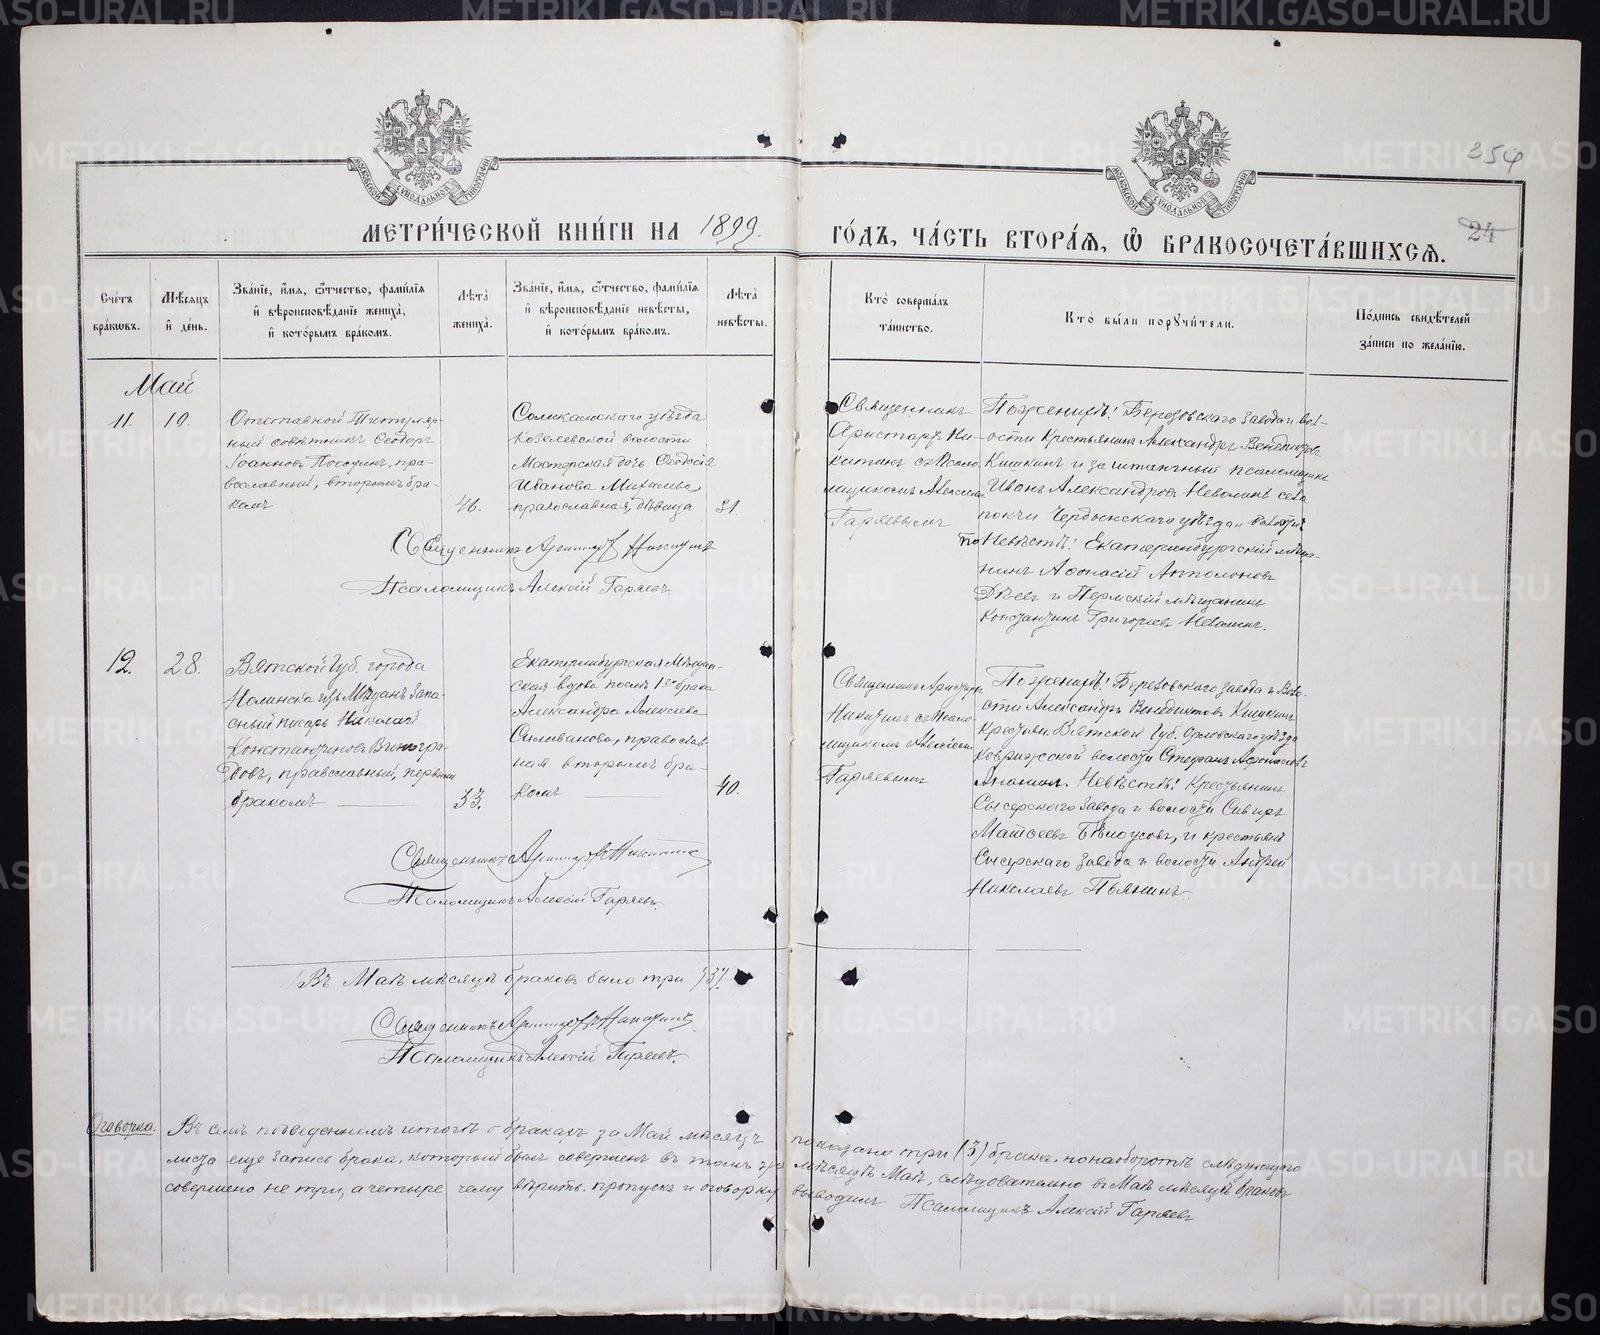 МЕТРИ́ЧЕСКОЙ КНИ́ГИ НА 1899.
ГО́ДЪ, ЧА́СТЬ ВТОРА́Я, Ѡ БРАКОСОЧЕТА́ВШИХСЯ.
254
24
Сче́тъ бра́кωвъ.
Мѣ́сяцъ и҆ де́нь.
Зва́нїе, и҆́мя, ѻ҆́тчество, фами́лїя
и҆ вѣроисповѣ́данїе жениха̀,
и҆ кото́рымъ бра́комъ.
Лѣ́та жениха̀.
Зва́нїе, и҆́мя, ѻ҆́тчество, фами́лїя
и҆ вѣроисповѣ́данїе невѣ́сты,
и҆ кото́рымъ бра́комъ.
Лѣ́та невѣ́сты.
Кто̀ соверша́лъ
та́инство.
Кто̀ бы́ли порꙋчи́тели.
По́дпись свидѣ́телей
за́писи по жела́нїю.
Май
11. 19.
Отставной Титуляр-
ный совѣтникъ Ѳеодоръ
Іоанновъ, пра-
вославный, вторымъ бра-
комъ
46.
Соликамскаго уѣзда
волости
Мастерская дочь Ѳеодосія
Иванова
православная, дѣвица
31
Священникъ
Аристархъ Ни-
китинъ съ Псало-
мщикомъ Алексѣемъ
Гаряевымъ
По женихѣ: Березовскаго завода и вол-
ости Крестьянинъ Александръ Венедиктовъ
Кишкинъ и заштатный псаломщикъ
Иванъ Александровъ Неволинъ села
покчи Чердынскаго уѣзда
по Невѣстѣ: Екатеринбургскій мѣща-
нинъ Аѳонасій
и Пермскій мѣщанинъ
Константинъ Григорьевъ Неволинъ.
Священникъ Аристархъ Никитинъ
Псаломщикъ Алексій Гаряевъ
12. 28.
Вятской Губ. города
Нолинска изъ Мѣщанъ Запа-
сный писарь Николай
Константиновъ Виногра-
довъ, православный, первымъ
бракомъ
33.
Екатеринбургская Мѣщан-
ская вдова послѣ 1го брака
Александра Алексѣева
Силиванова, православ-
ная вторымъ бра-
комъ
40.
Священникъ Аристархъ
Никитинъ съ Псало-
мщикомъ Алексѣемъ
Гаряевымъ
По женихѣ: Березовскаго завода и воло-
сти Александръ Венедиктовъ Кишкинъ
Крестьян. Вятской Губ. Орловскаго уѣзда
волости Стефанъ Аѳонасьевъ
Невѣстѣ: Крестьянинъ
Сысерскаго завода и волости
Матѳеевъ Бѣлоусовъ, и крестьян
Сысерскаго завода и волости Андрей
Николаевъ Пьянинъ
Священникъ Аристархъ Никитинъ
Псаломщикъ Алексій Гаряевъ.
Въ Маѣ мѣсяцѣ браковъ было три (3).
Священникъ Аристархъ Никитинъ
Псаломщикъ Алексій Гаряевъ.
Оговорка. Въ семъ подведенномъ итогѣ о бракахъ за Май мѣсяцъ показано три (3) брака, но на оборотѣ слѣдующаго
листа еще запись брака, который былъ совершенъ въ томъ же мѣсяцѣ Маѣ, слѣдовательно въ Маѣ мѣсяцѣ браковъ
совершено не три, а четыре чему вѣрить. пропускъ и оговорку выводилъ Псаломщикъ Алексій Гаряевъ